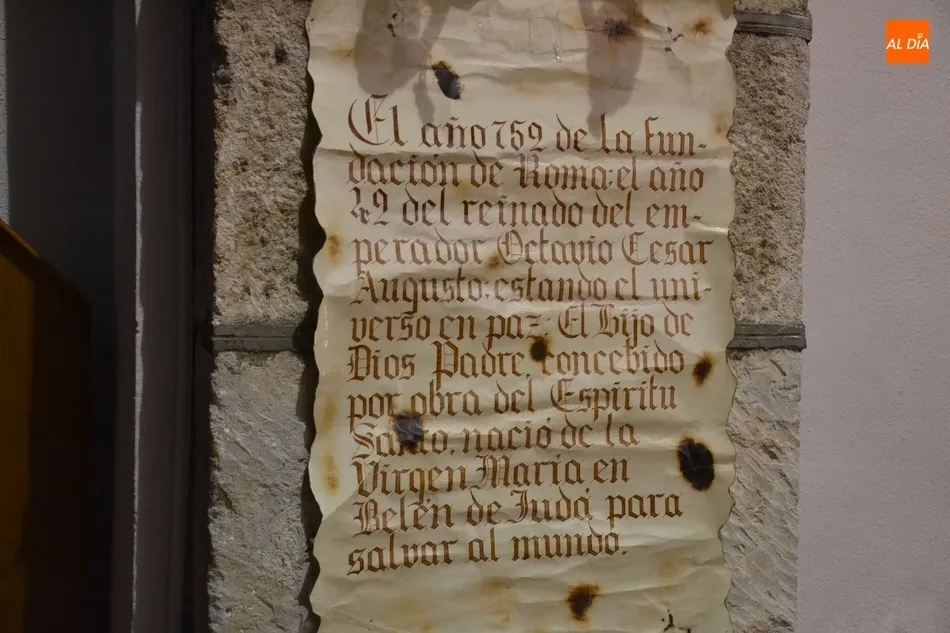 AL DÍA
El año 752 de la fun-
dación de Roma: el año
42 del reinado del em-
perador Octavio Cesar
Augusto: estando el uni-
verso en paz: El Hijo de
Dios Padre, concebido
por obra del Espiritu
Santo, nació de la
Virgen Maria en
Belén de Judá, para
salvar al mundo.